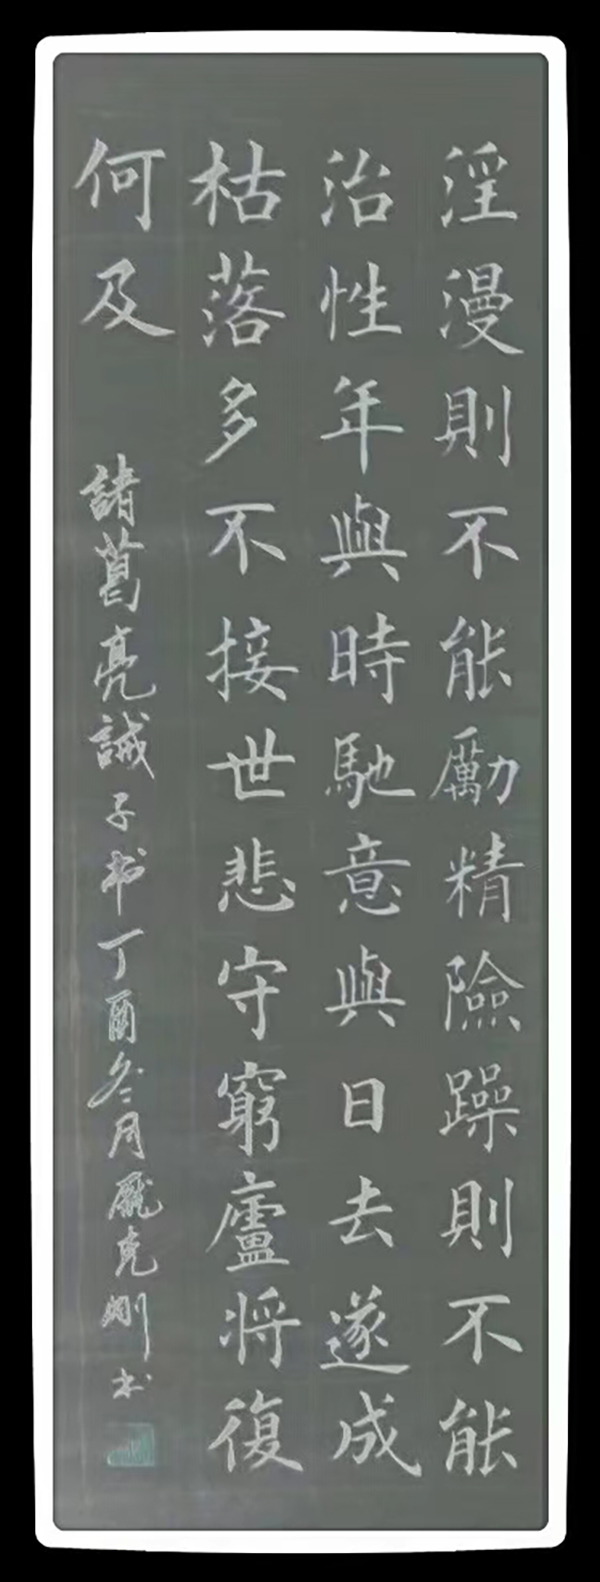 淫漫則不能勵精險躁則不能
治性年與時馳意與日去遂成
枯落多不接世悲守窮廬將復
何及
諸葛亮誡子书丁酉冬月龐克刚书